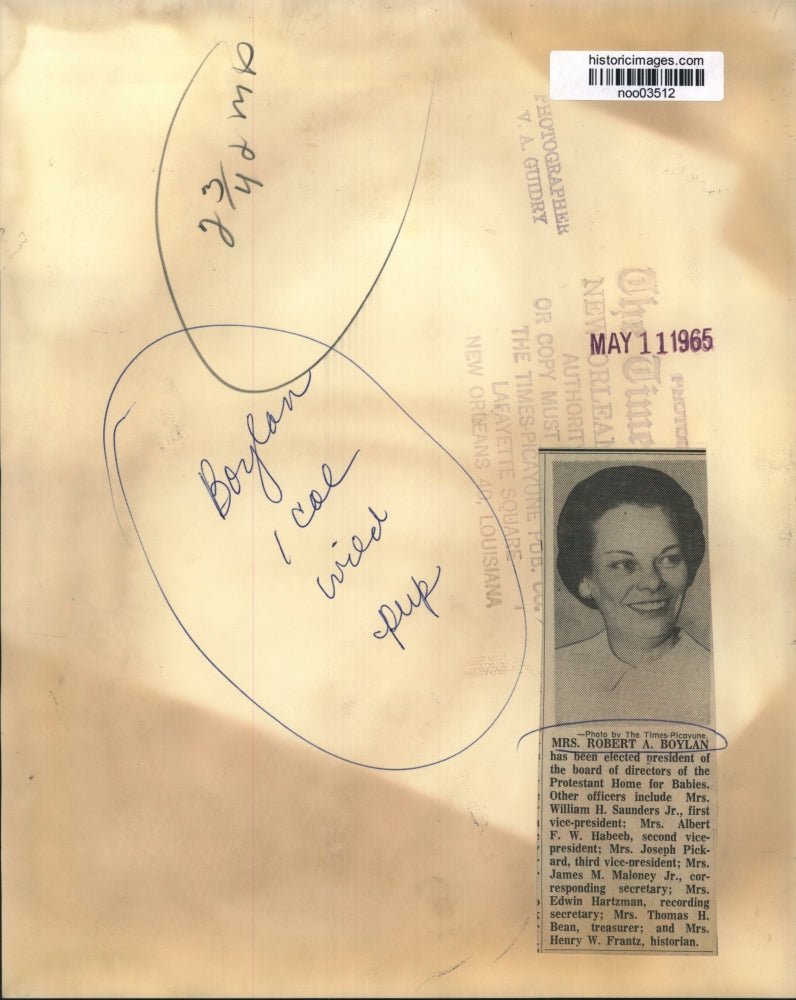 historicimages.com
noo03512
2 3/4
PHOTOGRAPHER
V. A. GUIDRY
The Time
NEW ORLEAN
AUTHORIT
OR COPY MUST
THE TIMES-PICAYUNE PUB. CO.
LAFAYETTE SQUARE
NEW ORLEANS 40, LOUISIANA
MAY 11 1965
Boylan
1 col
wild
pup
—Photo by The Times-Picayune.
MRS. ROBERT A. BOYLAN
has been elected president of
the board of directors of the
Protestant Home for Babies.
Other officers include Mrs.
William H. Saunders Jr., first
vice-president; Mrs. Albert
F. W. Habeeb, second vice-
president; Mrs. Joseph Pick-
ard, third vice-president; Mrs.
James M. Maloney Jr., cor-
responding secretary; Mrs.
Edwin Hartzman, recording
secretary; Mrs. Thomas H.
Bean, treasurer; and Mrs.
Henry W. Frantz, historian.